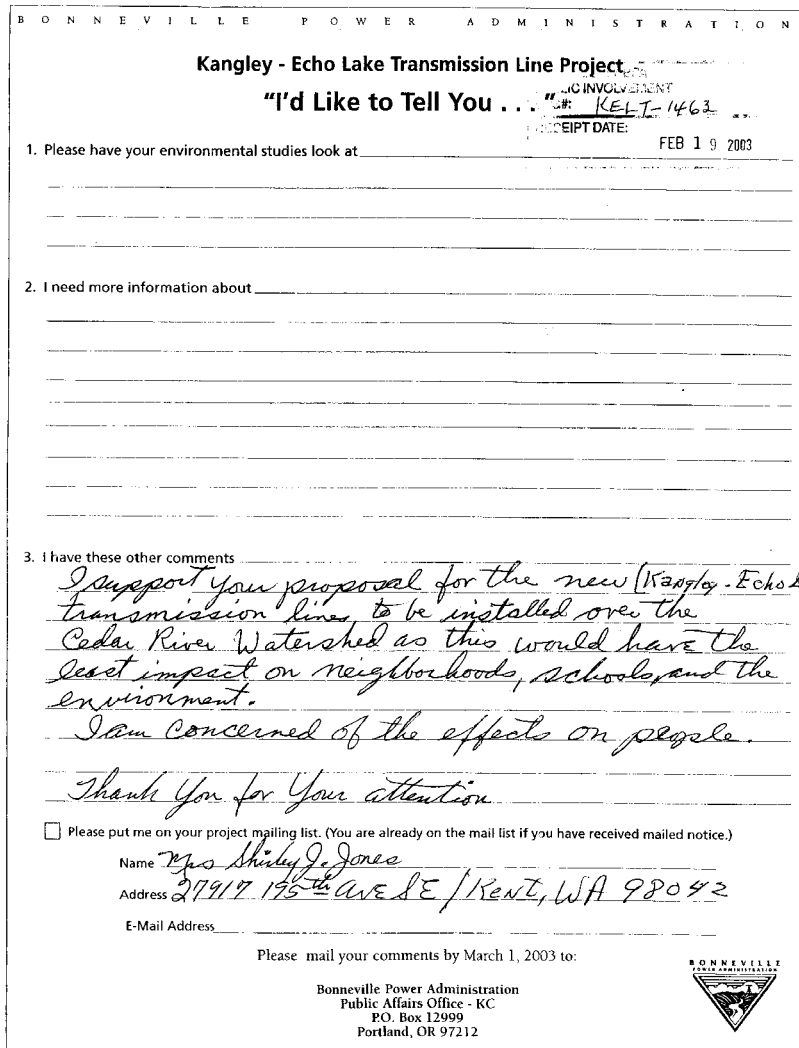 BONNEVILLE POWER ADMINISTRATION
Kangley - Echo Lake Transmission Line Project
"I'd Like to Tell You . . ."
IC INVOLVEMENT
#: KELT-1463
EIPT DATE:
FEB 19 2003
1. Please have your environmental studies look at
2. I need more information about
3. I have these other comments
I support your proposal for the new (Kangley - Echo L
transmission lines to be installed over the
Cedar River Watershed as this would have the
least impact on neighborhoods, schools, and the
environment.
I am concerned of the effects on people.
Thank You for Your attention
Please put me on your project mailing list. (You are already on the mail list if you have received mailed notice.)
Name Mrs Shirley J. Jones
Address 27917 195th AVE SE / KENT, WA 98042
E-Mail Address
Please mail your comments by March 1, 2003 to:
Bonneville Power Administration
Public Affairs Office - KC
P.O. Box 12999
Portland, OR 97212
BONNEVILLE
POWER ADMINISTRATION